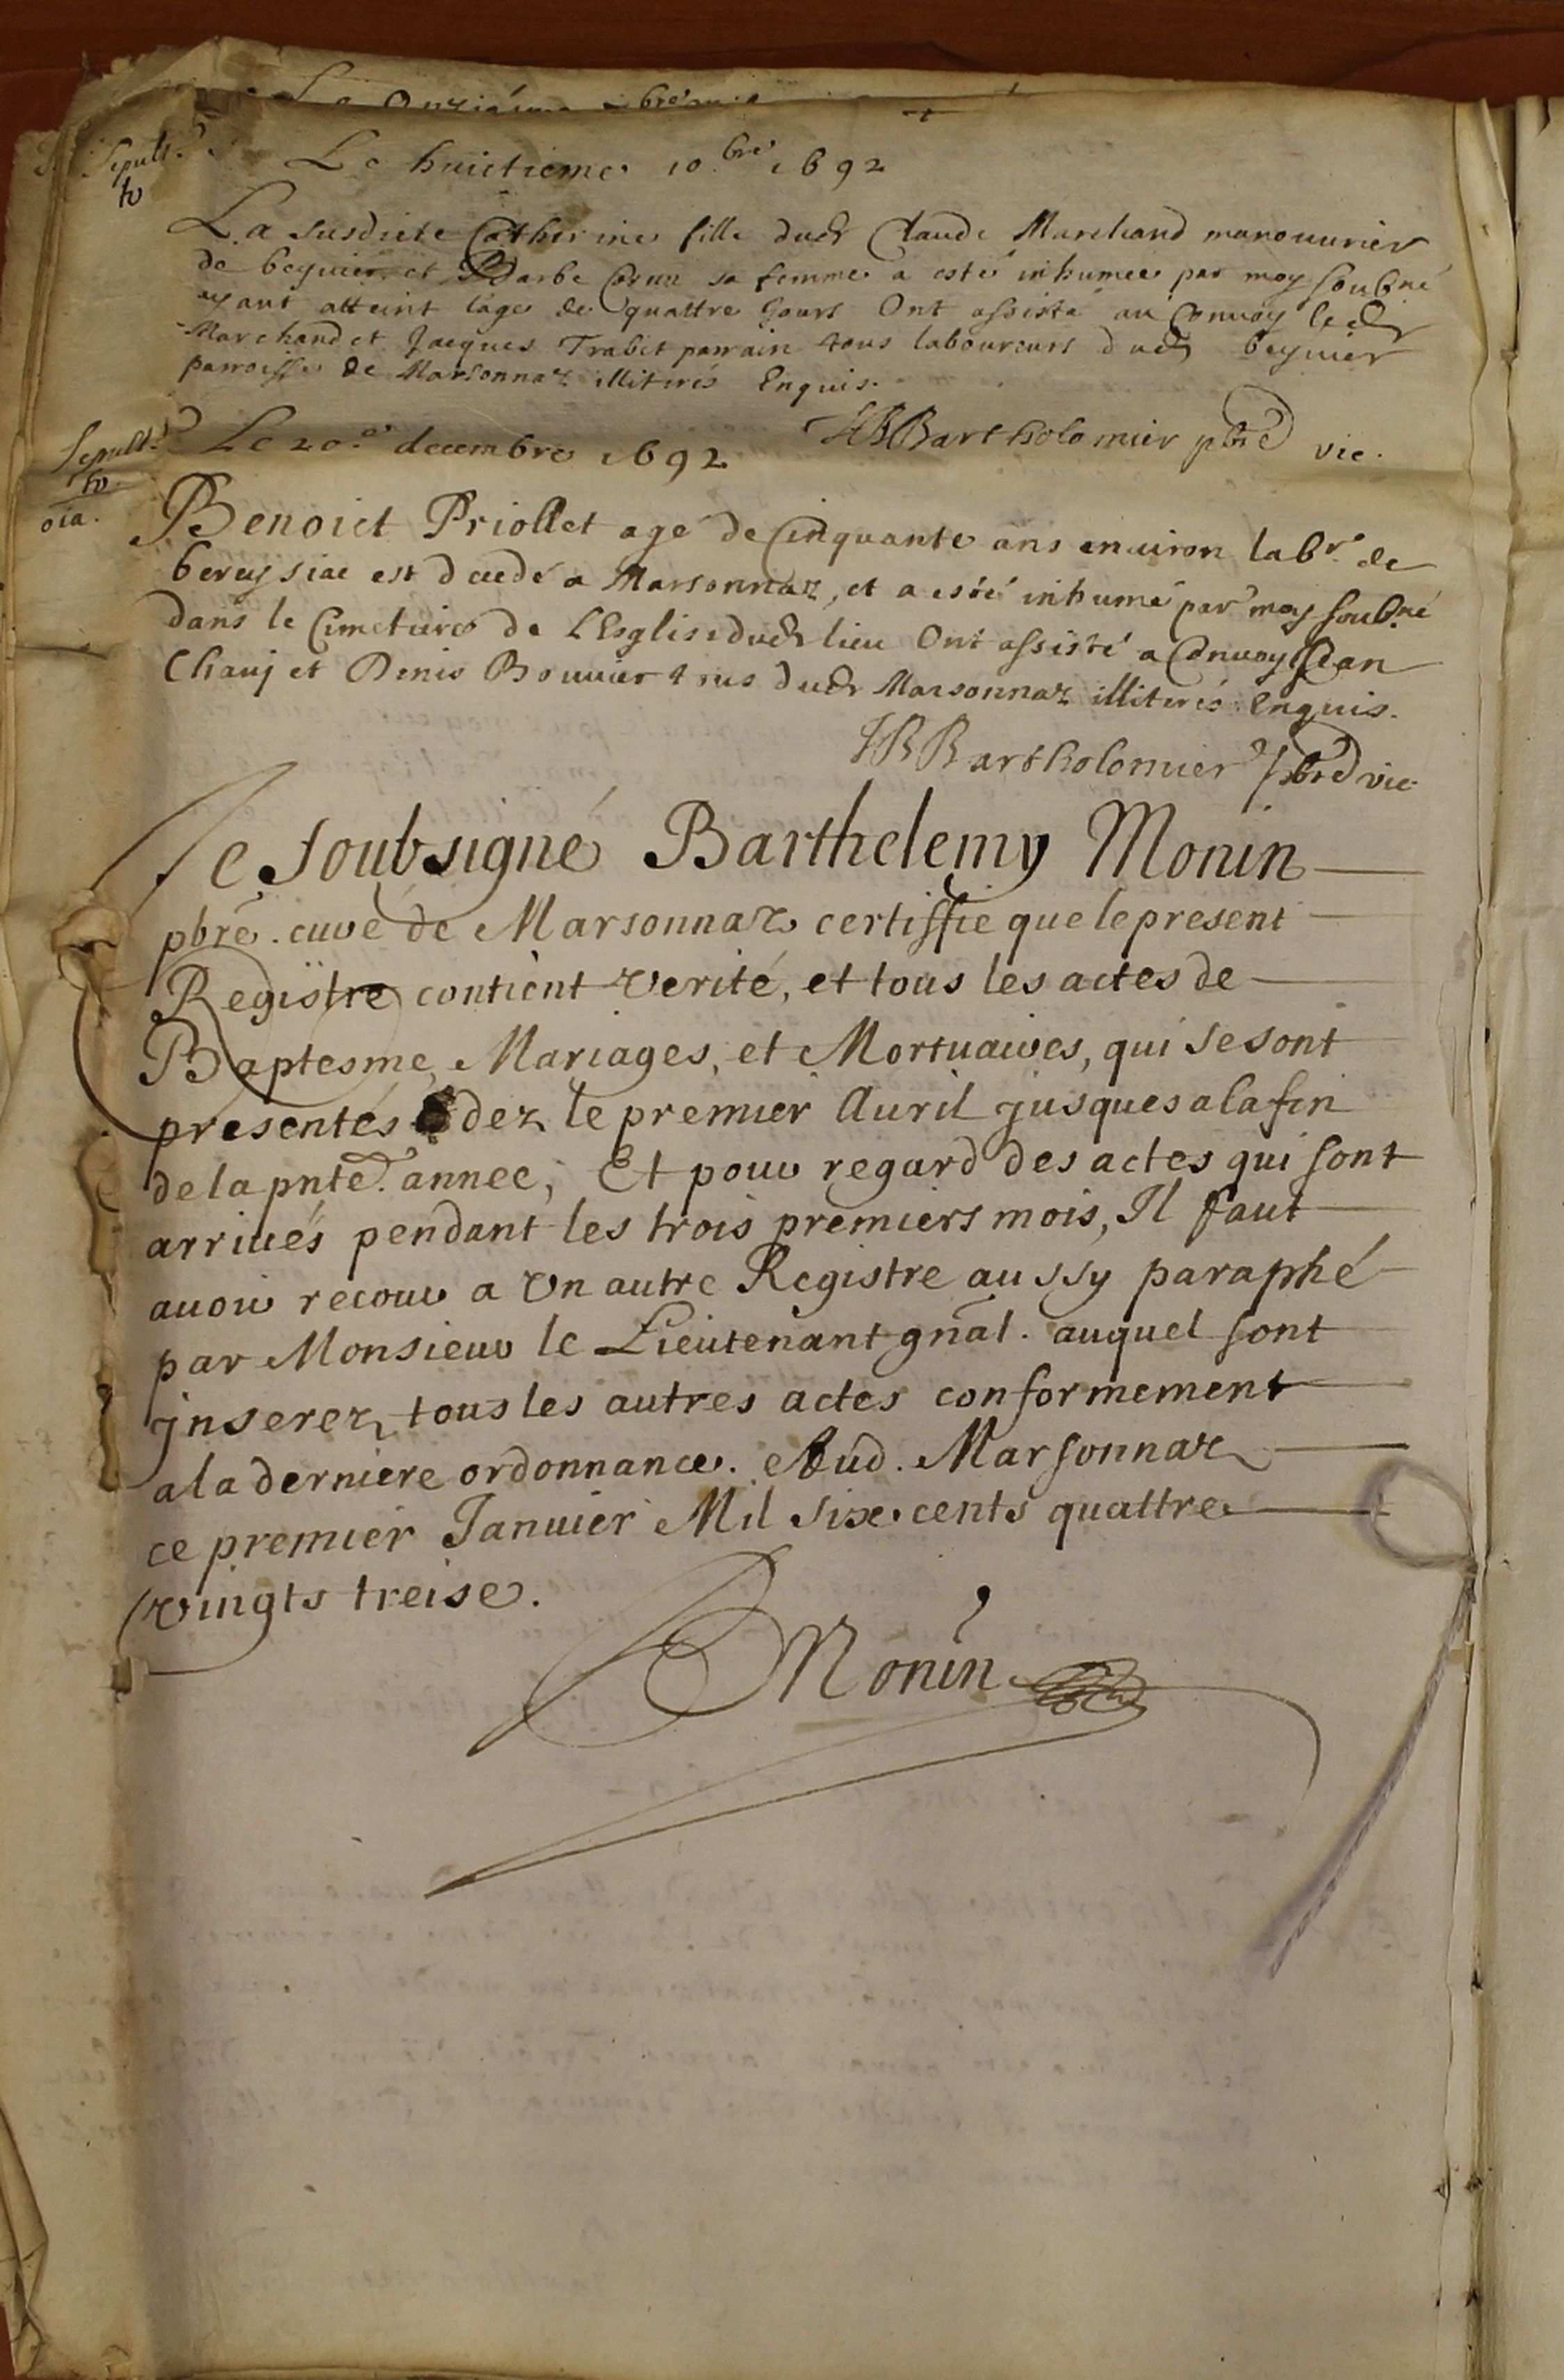 Le Onziéme
Sepult.
Le huictieme 10.bre 1692
La susdicte Catherine fille dudt Claude Marchand manouurier
de beyuier et Barbe sa femme a esté inhumee par moy soubné
ayant atteint lage de quattre Jours Ont assisté au Conuoy ledt
Marchand et Jacques Trabet parrain tous laboureurs dudt beyuier
parroisse de Marsonnaz illiterés Enquis.
HBBartholomier pbre vic.
Sepult.
Le 20.e decembre 1692
Benoict Priollet agé de Cinquante ans enuiron labr. de
bereysiac est decedé a Marsonnaz, et a esté inhumé par moy soubné
dans le Cimetiere de LEsglise dudt lieu Ont assisté a Conuoy Jean
Chauj et Denis Bouuier tous dudt Marsonnaz illiterés Enquis.
HBBartholomier pbre vic
Je soubsigné Barthelemy Monin
pbré. curé de Marsonnaz certiffie que le present
Registre contient verité, et tous les actes de
Baptesme, Mariages, et Mortuaires, qui se sont
présentés dez le premier Auril jusques a la fin
de la pnte. annee, Et pour regard des actes qui sont
arriués pendant les trois premiers mois, Il faut
auoir recour a Vn autre Registre aussy paraphé
par Monsieur le Lieutenant gnãl. auquel sont
jnserez tous les autres actes conformement
a la derniere ordonnance. Aud. Marsonnaz
ce premier Januier Mil six cents quattre
vingts treise.
BMonin